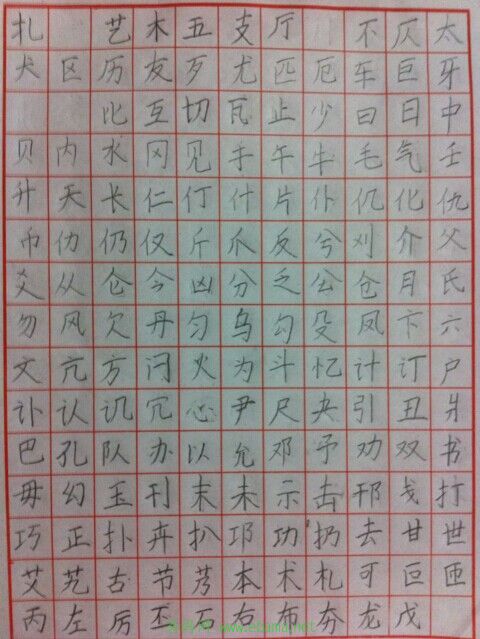 扎 艺木五支厅 不仄太
犬区历友歹尤匹厄车巨牙
比互切瓦止少曰日中
贝内水冈见手午牛毛气壬
升夭长仁仃什片仆仉化仇
币仂仍仅斤爪反兮刈介父
爻从仑今凶分乏公仓月氏
勿风欠丹匀乌勾殳凤卞六
文亢方闩火为斗忆计订户
讣认讥冗心尹尺夬引丑爿
巴孔队办以允邓予劝双书
毋幻玉刊末未示击邗戋打
巧正扑卉扒邛功扔去甘世
艾艽古节艿本术札可叵匝
丙左厉丕石右布夯龙戊
www.ebuma.net